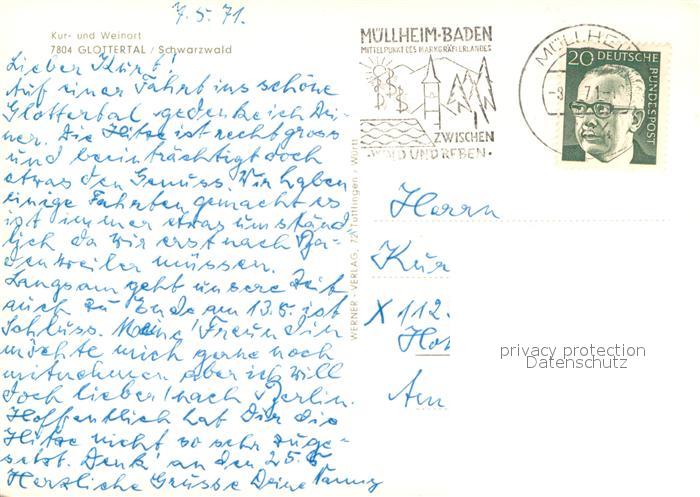 7.5.71.
Kur- und Weinort
7804 GLOTTERTAL / Schwarzwald
Lieber Kurt!
Auf einer Fahrt ins schöne
Glottertal gedenke ich Dei-
ner. Die Hitze ist recht gross
und beeinträchtigt doch
etwas den Genuss. Wir haben
einige Fahrten gemacht es
ist immer etwas umständ
lich da wir erst nach Ba-
denweiler müssen.
Langsam geht unsere Zeit
auch zu Ende am 13.5. ist
Schluss. Meine Freundin
möchte mich gerne noch
mitnehmen aber ich will
doch lieber nach Berlin.
Hoffentlich hat Dir die
Hitze nicht so sehr zuge-
setzt. Denk' an den 25.5
Herzliche Grüsse Deine
WERNER-VERLAG, Tuttlingen / Württ
MÜLLHEIM-BADEN
MITTELPUNKT DES MARKGRÄFLERLANDES
ZWISCHEN
WALD UND REBEN
MÜLLHEI
-8 71-
20 DEUTSCHE
BUNDESPOST
Herrn
Kur
X 112.
Am
privacy protection
Datenschutz